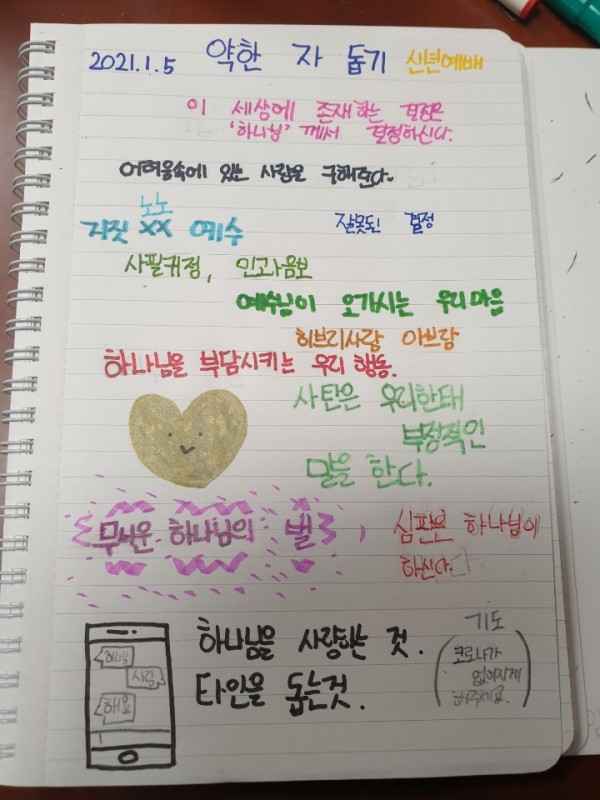 2021.1.5 약한 자 돕기 신년예배
이 세상에 존재하는 결정은
'하나님' 께서 결정하신다.
어려움속에 있는 사람을 구해준다.
노노
거짓 XX 예수 잘못된 결정
사필귀정, 인과응보
예수님이 오가시는 우리마음
히브리사람 아브람
하나님을 부담시키는 우리 행동.
사탄은 우리한돼
부정적인
말을 한다.
무서운 하나님의 벌
심판은 하나님이
하신다.
하나님을 사랑하는 것.
타인을 돕는것.
하나님
사랑
해요
기도
코로나가
없어지게
해주세요.